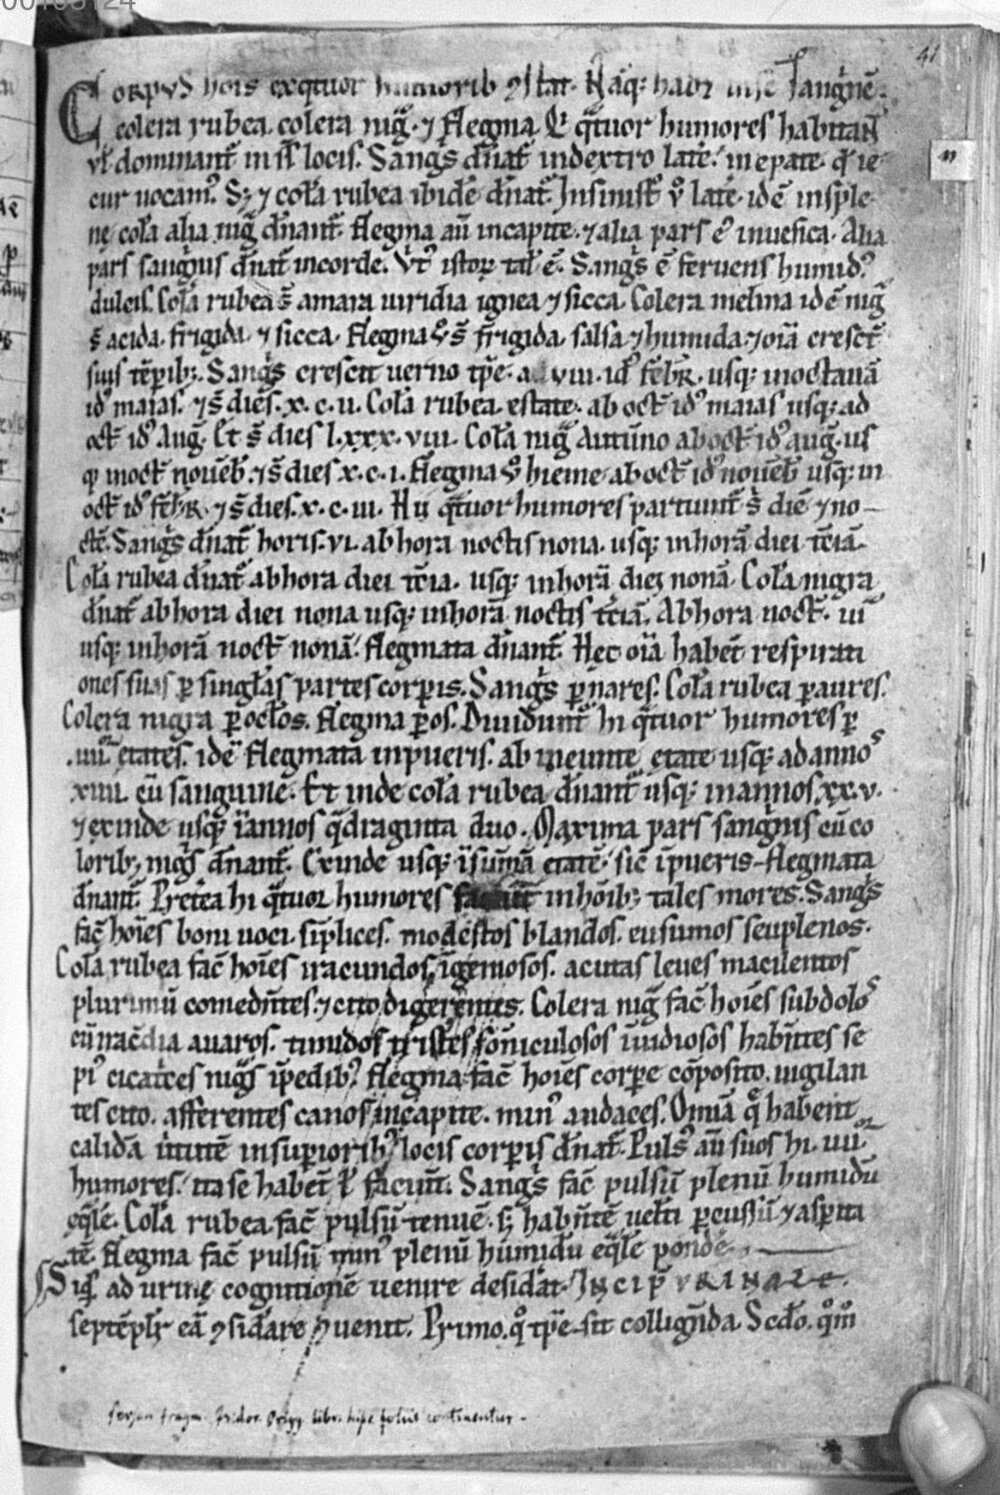 00103124
41
Corpus hoīs ex qͣtuor humorib ꝯstat. Nāq; habꝫ in se sanguinē.
colera rubea. colera nigͣ. ⁊ flegma. Qͥ qͣtuor humores habitant
vł dominant̄ in sł locis. Sangͥs dn̄at̄ in dextro late. in epate. qͥ ie
cur uocamꝰ. Sꝫ ⁊ cola rubea ibidē dn̄at̄. In sinistͦ ꝟͦ late. id ē in sple
ne cola alia nigͣ dn̄ant̄. flegma aū in capite. ⁊ alia pars ē in uesica. Alia
pars sanguinis dn̄at̄ in corde. istoꝝ tał ē. Sangͥs ē feruens humidꝰ
dulcis. Cola rubea ē amara uiridia ignea ⁊ sicca. Colera melina id ē nigͣ
ē acida. frigida. ⁊ sicca. flegma ꝟͦ ē frigida. salsa ⁊ humida. ⁊ oīa cresct̄
suis tēporib;. Sangͥs crescit uerno tp̄e. a viii. idꝰ feƀr. usq; in octauā
idꝰ maias. ⁊ s̄ dies. x. c. u. Cola rubea estate. ab oct̄ idꝰ maias usq; ad
oct̄ idꝰ auḡ. Et s̄ dies l.xxx.viii. Cola nigͣ autūno ab oct̄ idꝰ auḡ. us
q; in oct̄ nouēƀ. ⁊ s̄ dies x.c.i. flegma ꝟͦ hieme ab oct̄ idꝰ nouēƀ usq; in
oct̄ idꝰ feƀr. ⁊ s̄ dies. x.c.iii. Hii qͣtuor humores partiunt̄ s̄ diē ⁊ no-
ctē. Sangͥs dn̄at̄ horis. vi. ab hora noctis nona. usq; in horā diei t̄ciā.
Cola rubea dn̄at̄ ab hora diei t̄cia. usq; in horā diei nonā. Cola nigra
dn̄at̄ ab hora diei nona usq; in horā noctis t̄ciā. Ab hora noct̄. iii
usq; in horā noct̄ nonā. flegmata dn̄ant̄. Hec oīa habent respirati
ones suas ꝑ singłas partes corꝑis. Sangͥs ꝑ nares. Cola rubea ꝑ aures.
Colera nigra ꝑ oclos. flegma ꝑ os. Diuidunt̄ hi qͣtuor humores ꝑ
.iiii. etates. id ē flegmata in pueris. ab ineunte etate usq; ad annos
xiiii. cū sanguine. Et inde cola rubea dn̄ant̄ usq; in annos. xx.v.
⁊ exinde usq; ī annos qͣdraginta duo. Maxima pars sangͥnis cū co
lorib; nigͥs dn̄ant̄. Exinde usq; ī sūmā etatē. sic̄ ī pueris flegmata
dn̄ant̄. Pretea hi qͣtuor humores faciūt in hoīb; tales mores. Sangͥs
fac̄ hoīes boni uoci. sīplices. modestos blandos. eusumos seu plenos.
Cola rubea fac̄ hoīes iracundos īgeniosos. acutas leues macilentos
plurimū comedn̄tes. ⁊ cito digerentes. Colera nigͣ fac̄ hoīes subdolos
cū iracdia auaros. timidos tristes sōniculosos īuidiosos habn̄tes se
piꝰ cicat̄ces nigͣs ī pedib;. flegma fac̄ hoīes corꝑe cōposito. uigilan
tes cito. afferentes canos in capite. minꝰ audaces. Omīa qͥ habent
calidā ūtutē in suꝑiorib; locis corꝑis dn̄at̄. Pulsꝰ aū suos hi. iiii.
humores. ita se habēt ł faciūt. Sangͥs fac̄ pulsū plenū humidū
eqͣlē. Cola rubea fac̄ pulsū tenuē. sꝫ habn̄tē uełti ꝑcussū ⁊ asꝑita
tē. flegma fac̄ pulsū minꝰ plenū humidū eqͣlē pondē.
Si qͥs ad urine cognitionē uenire desidat. Incip̄ urinale.
septēpłr eā ꝯsidare ꝯuenit. Primo. qͦ tp̄e sit collignda. Scdo. qͦm̄